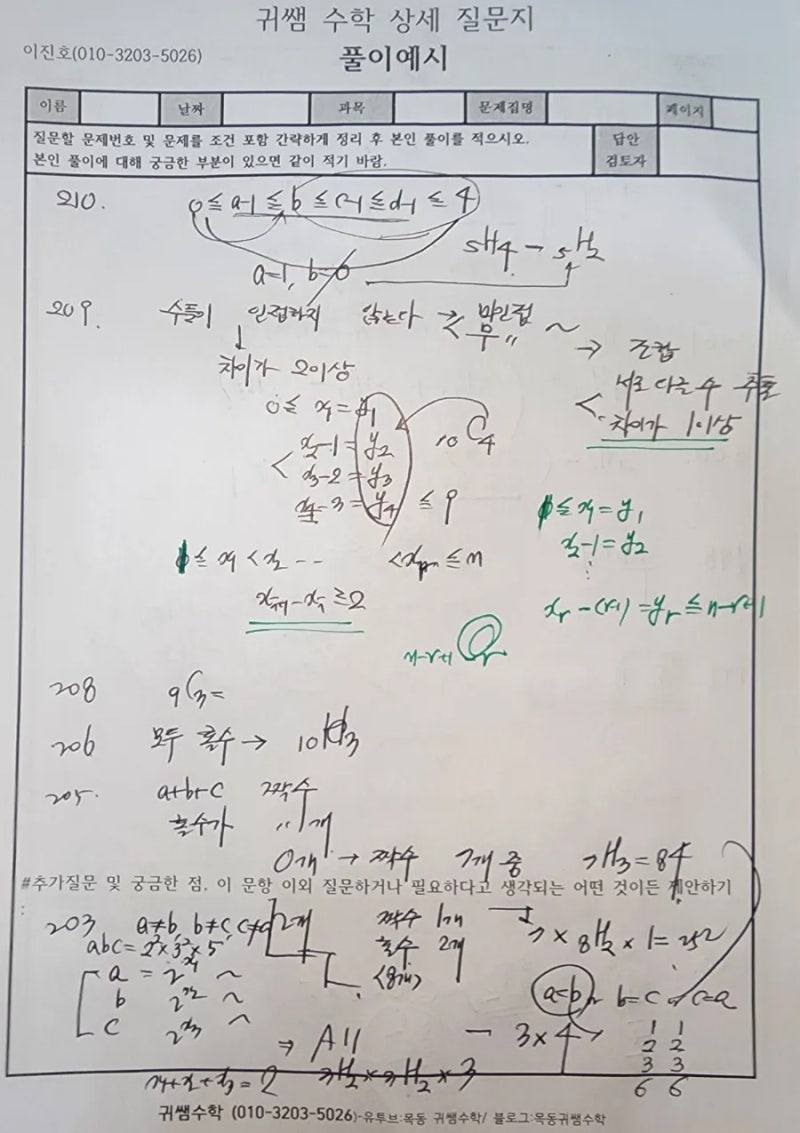 귀쌤 수학 상세 질문지
이진호(010-3203-5026)
풀이예시
이름 날짜 과목 문제집명 페이지
질문할 문제번호 및 문제를 조건 포함 간략하게 정리 후 본인 풀이를 적으시오.
본인 풀이에 대해 궁금한 부분이 있으면 같이 적기 바람.
답안
검토자
210. 0≦a-1≦b≦c-1≦d-1≦4
5H4 - 5H2
a=1, b=0
209. 수들이 인접하지 않는다 → < 미인접
무 〃 ~
→ 조합
차이가 2이상
< 서로 다른 수 추출
차이가 1이상
0≦ x1 = y1
x2-1 = y2
10C4
< x3-2 = y3
x4-3 = y4 ≦ 9
≦ x1 = y1
x2-1 = y2
⋮
≦ x1 < x2 -- < ≦ n
≧2
xr -(r-1) = yr ≦ n-r+1
n-r+1Cr
208 9C3=
206 모두 홀수 → 10H3
205. a+b+c 짝수
홀수가 〃 개
0개 → 짝수 7개 중 7H3 = 84
#추가질문 및 궁금한 점. 이 문항 이외 질문하거나 필요하다고 생각되는 어떤 것이든 제안하기
:
203 a≠b, b≠c, c≠a
2개
짝수 1개
홀수 2개
<8개)
→ 7 × 8H2 × 1 = 252
abc = 2²×3²×5
a = 2^x1 ~
b 2^x2 ~
c 2^x3 ~
a=b or b=c or c=a
⇒ All - 3×4
1 1
2 2
3 3
6 6
x1+x2+x3 = 2 3H2 × 3H2 × 3
귀쌤수학 (010-3203-5026)-유투브:목동 귀쌤수학/ 블로그:목동귀쌤수학